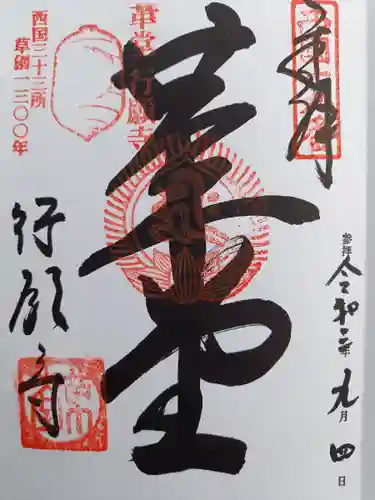 奉拝
参拝 令和二年九月四日
革堂
革堂行願寺
西国三十三所
草創一三〇〇年
行願寺